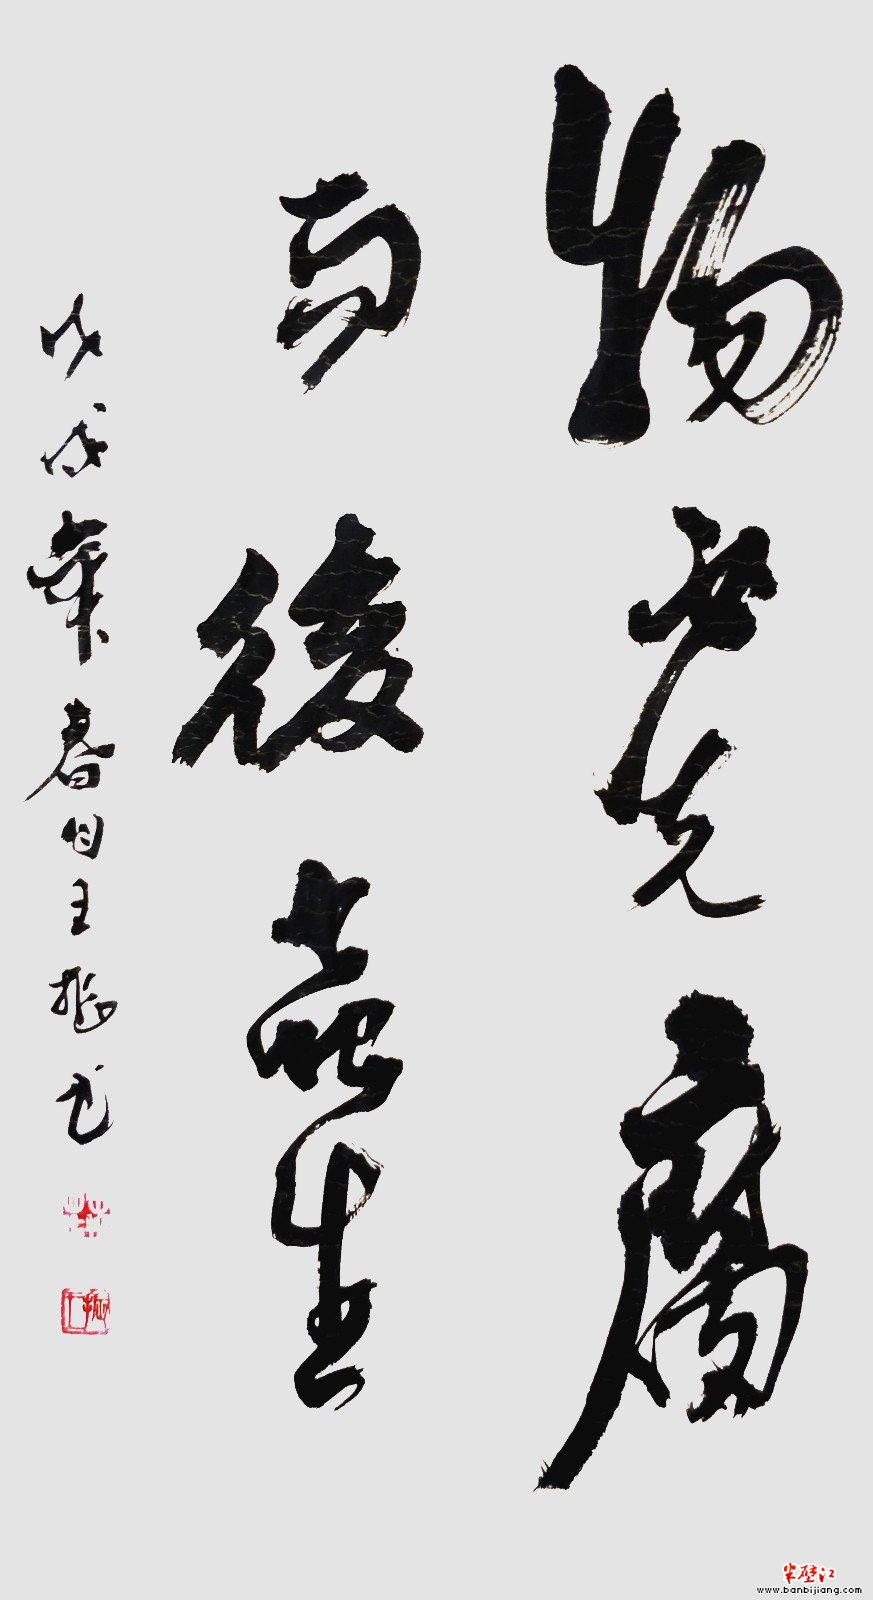 物必先腐
而後蟲生
戊戌年春月王振書
半壁江
www.banbijiang.com